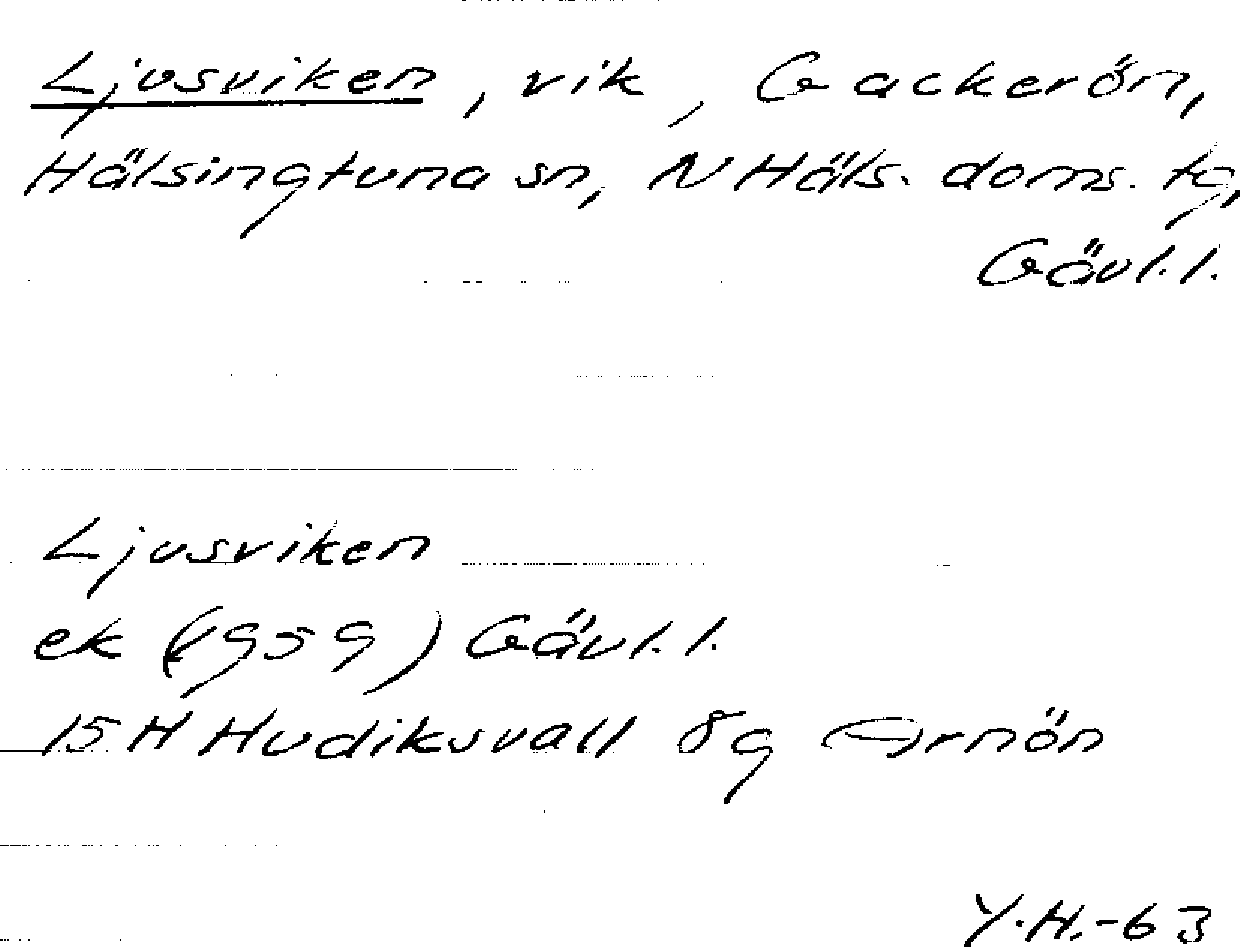 Ljusviken, vik, Gackerön,
Hälsingtuna sn, N Häls. doms. tg,
Gävl. l.
Ljusviken
ek (1959) Gävl. l.
15 H Hudiksvall 8g Arnön
Y.H.-63